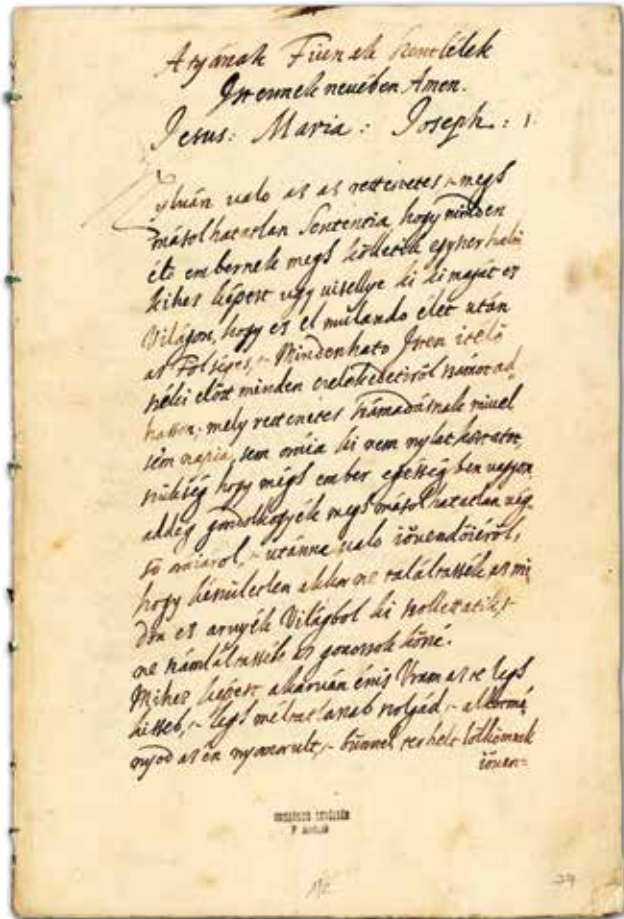 Atyának Fiunak Szentlélek
Istennek nevében Amen.
Jesus: Maria: Joseph: 1.
Nyluán ualo az az rettenetes, ~ megh
másolhatatlan Sententia, hogy minden
élő embernek megh kölletik egyszer halni
kihez képest ugy uisellye ki ki magát ez
Világon, hogy ez el mulando élet után
az Fölséges, ~ Mindenhato Isten itélő
széki előtt minden cselekedetiröl számot ad,
hasson; mely rettenetes számadásnak miuel
sem napia, sem oráia ki nem nylatkoztatot
szükség hogy mégh ember egésség ben uagyon
addég gondolkogyék megh másolhatatlan uég,
sö oraiarol, ~ utánna ualo iöuendöiéröl,
hogy készületlen akkor ne találtassék az mi
dön ez arnyék Világbol ki szollettatik, ~
ne számláltassék az gonoszok közzé.
Mihez képest akaruán énis Uram az te legh
kisseb, ~ legh méltatlanab szolgád, ~ alkotmá,
nyod az én nyomorult, ~ bünnel terhelt lölkömnek
iöuen=
ORSZÁGOS LEVÉLTÁR